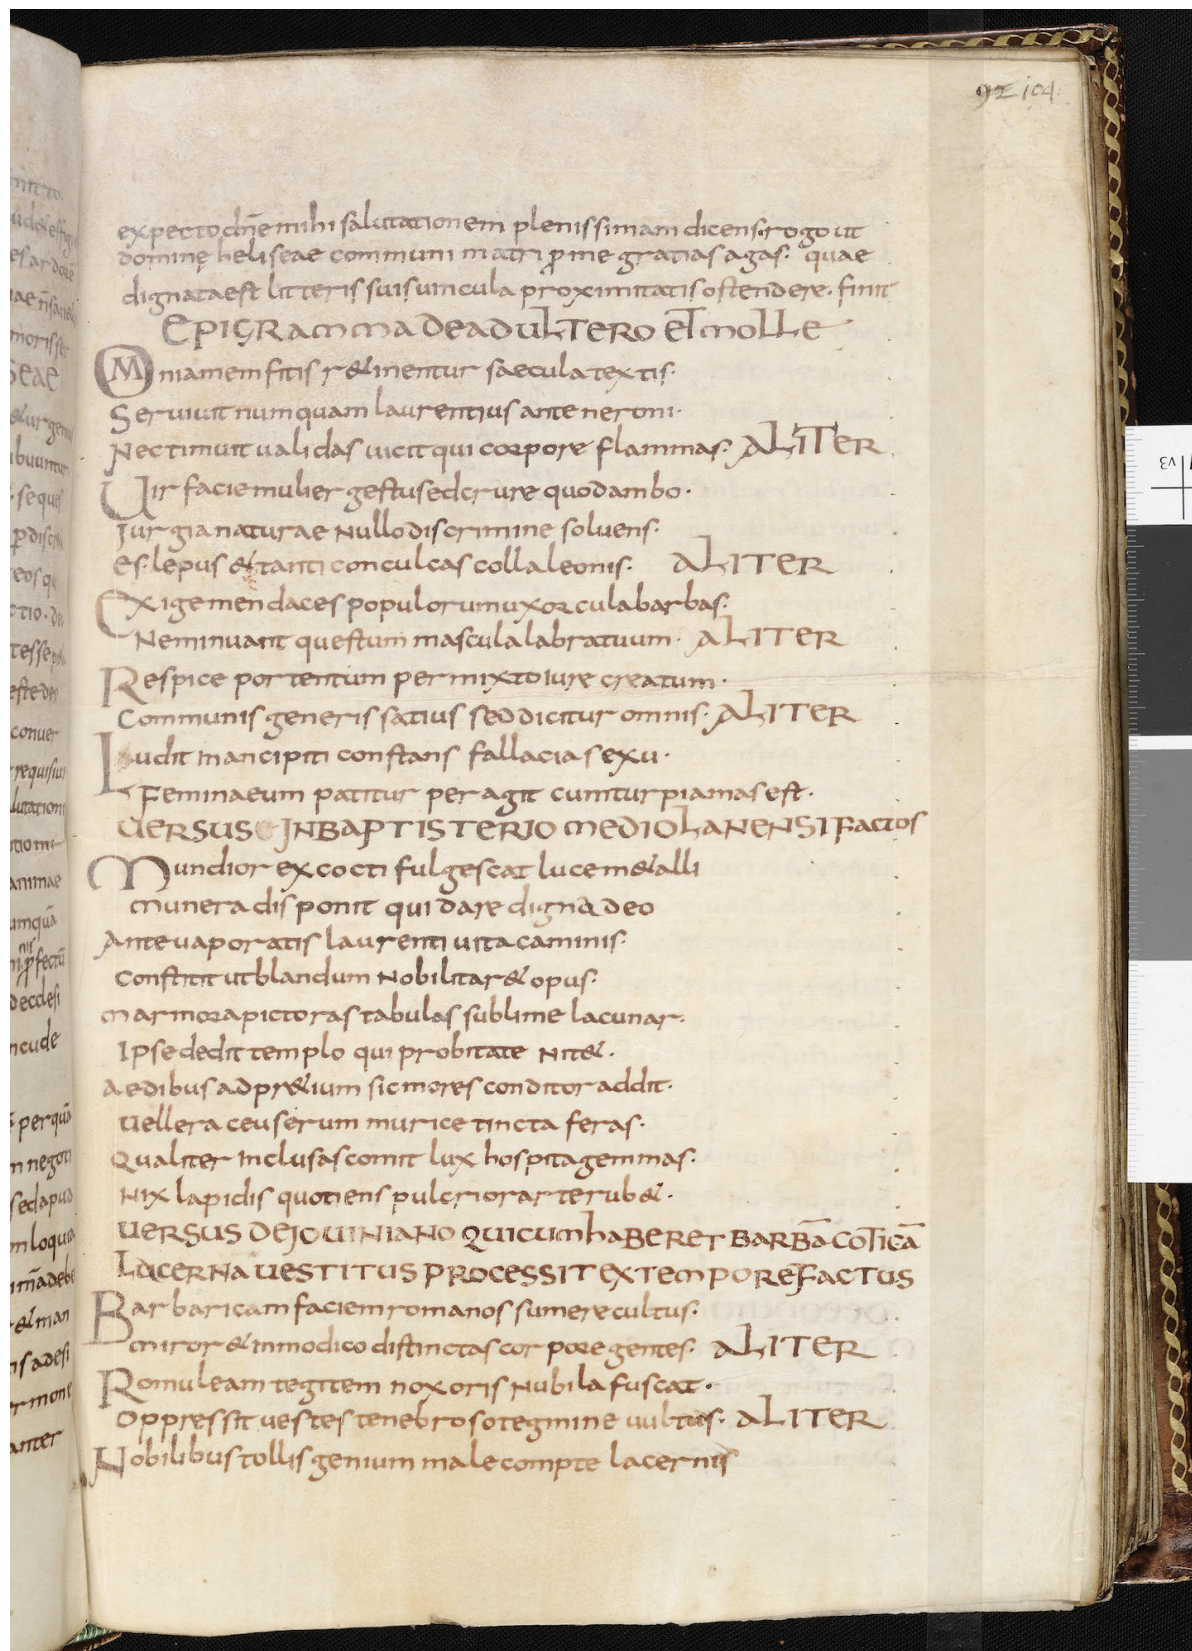 92 104
expecto dn̄e mihi salutationem plenissimam dicens. rogo ut
dominę heliseae communi matri ꝓme gratias agas. quae
dignata est litteris suis uincula proximitatis ostendere. finit
EPIGRAMMA DE ADULTERO ET MOLLE
Omnia memfitis r&inentur saecula textis.
Seruiuit numquam laurentius ante neroni.
Nec timuit ualidas uicit qui corpore flammas. ALITER
Uir facie mulier gestu sed crure quod ambo.
Iurgia naturae nullo discrimine soluens.
Es lepus & tanti conculcas colla leonis. ALITER
Exige mendaces populorum uxorcula barbas.
Ne minuant questum mascula labra tuum. ALITER
Respice portentum permixto iure creatum.
Communis generis satius sed dicitur omnis. ALITER
Ludit mancipiti constans fallacia sexu.
Feminaeum patitur peragit cum turpia mas est.
UERSUS IN BAPTISTERIO MEDIOLANENSI Factos
Mundior excocti fulgescat luce m&alli
munera disponit qui dare digna deo
Ante uaporatis laurenti uita caminis.
Constitit ut blandum nobilitar& opus.
marmora pictoras tabulas sublime lacunar.
Ipse dedit templo qui probitate nit&.
aedibus ad pr&ium sic mores conditor addit.
Uellera ceu serum murice tincta feras.
Qualiter inclusas comit lux hospita gemmas.
Nix lapidis quotiens pulcrior arte rub&.
UERSUS DE IOUINIANO QUI CUM haBERET BARBĀ COTICĀ
LACERNA UESTITUS PROCESSIT EX TEMPORE FACTUS
Barbaricam faciem romanos sumere cultus.
miror & inmodico distinctas corpore gentes. ALITER
Romuleam tegitem nox oris nubila fuscat.
oppressit uestes tenebroso tegmine uultus. ALITER
Nobilibus tollis genium male compte lacernis